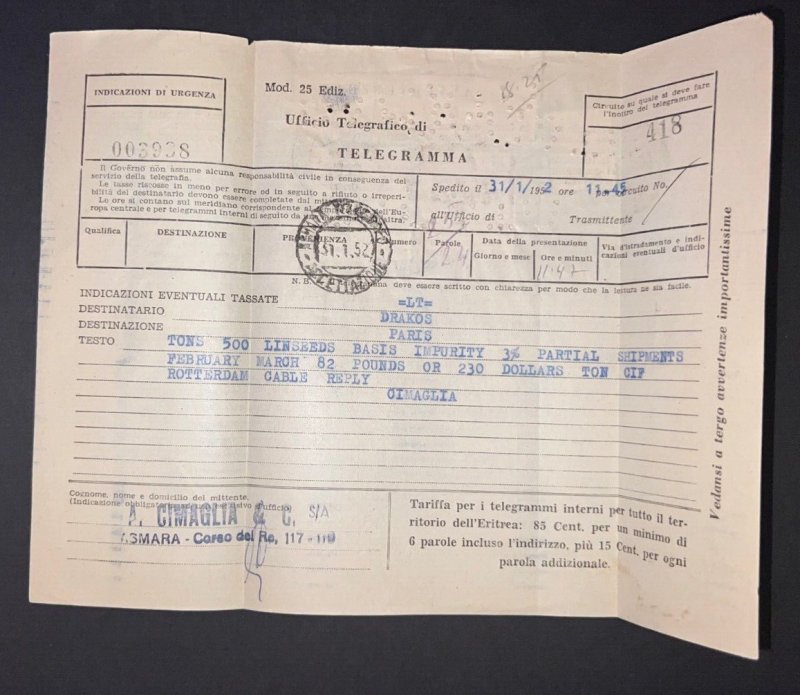 INDICAZIONI DI URGENZA
003938
Mod. 25 Ediz.
18.25
Ufficio Telegrafico di
TELEGRAMMA
Circuito su quale si deve fare
l'inoltro del telegramma
418
Il Governo non assume alcuna responsabilità civile in conseguenza del
servizio della telegrafia.
Le tasse riscosse in meno per errore od in seguito a rifiuto o irreperi-
bilità del destinatario devono essere completate dal
Le ore si contano sul meridiano corrispondente al dell'Eu-
ropa centrale e per telegrammi interni di seguito da altra.
Spedito il 31/1/1952 ore 11.45 per circuito No.
all'Ufficio di Trasmittente
Qualifica
DESTINAZIONE
PROVENIENZA
Numero
Parole
24
Data della presentazione
Giorno e mese
Ore e minuti
11.47
Via d'istradamento e indi-
cazioni eventuali d'ufficio
31.1.52
ACCETTAZIONE
N. B. deve essere scritto con chiarezza per modo che la lettura ne sia facile.
INDICAZIONI EVENTUALI TASSATE =LT=
DESTINATARIO DRAKOS
DESTINAZIONE PARIS
TESTO TONS 500 LINSEEDS BASIS IMPURITY 3% PARTIAL SHIPMENTS
FEBRUARY MARCH 82 POUNDS OR 230 DOLLARS TON CIF
ROTTERDAM CABLE REPLY
CIMAGLIA
Cognome, nome e domicilio del mittente.
(Indicazione ufficio)
A. CIMAGLIA & C. S/A
ASMARA - Corso del Re, 117 - 119
Tariffa per i telegrammi interni per tutto il ter-
ritorio dell'Eritrea: 85 Cent. per un minimo di
6 parole incluso l'indirizzo, più 15 Cent. per ogni
parola addizionale.
Vedansi a tergo avvertenze importantissime